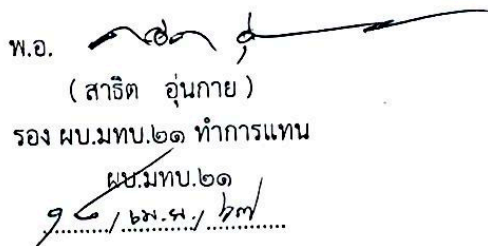 พ.อ.
( สาธิต อุ่นกาย )
รอง ผบ.มทบ.๒๑ ทำการแทน
ผบ.มทบ.๒๑
/ เม.ย. / ๖๗